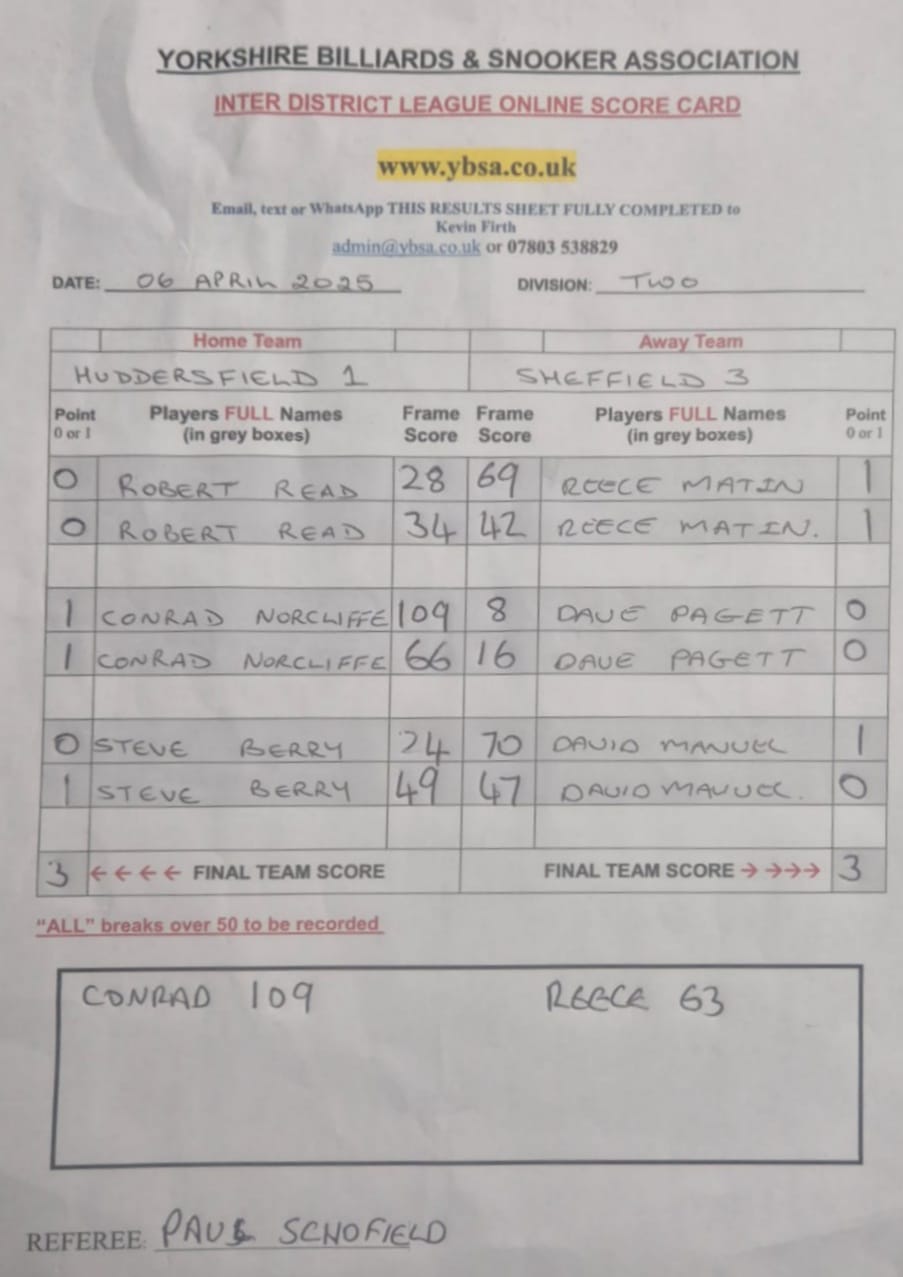 YORKSHIRE BILLIARDS & SNOOKER ASSOCIATION
INTER DISTRICT LEAGUE ONLINE SCORE CARD
www.ybsa.co.uk
Email, text or WhatsApp THIS RESULTS SHEET FULLY COMPLETED to
Kevin Firth
admin@ybsa.co.uk or 07803 538829
DATE: 06 APRIL 2025 DIVISION: TWO
Home Team Away Team
HUDDERSFIELD 1 SHEFFIELD 3
Point Players FULL Names Frame Frame Players FULL Names Point
0 or 1 (in grey boxes) Score Score (in grey boxes) 0 or 1
0 ROBERT READ 28 69 REECE MATIN 1
0 ROBERT READ 34 42 REECE MATIN. 1
1 CONRAD NORCLIFFE 109 8 DAVE PAGETT 0
1 CONRAD NORCLIFFE 66 16 DAVE PAGETT 0
0 STEVE BERRY 24 70 DAVID MANUEL 1
1 STEVE BERRY 49 47 DAVID MANUEL. 0
3 ←←←← FINAL TEAM SCORE FINAL TEAM SCORE →→→→ 3
"ALL" breaks over 50 to be recorded
CONRAD 109 REECE 63
REFEREE: PAUL SCHOFIELD